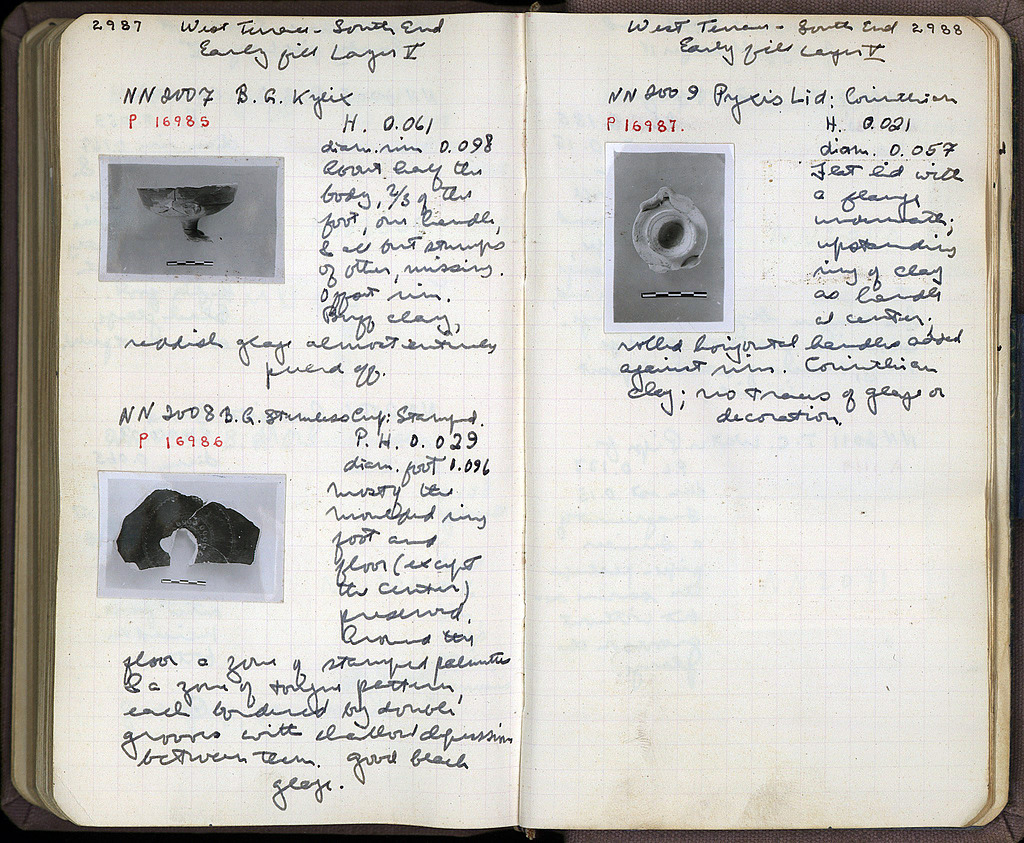 2987 West Terrace - South End
Early fill Layer V
NN 2007 B. G. Kylix
P 16985
H. 0.061
diam. rim 0.098
About half the
body, 2/3 of the
foot, one handle,
& all but stumps
of other, missing.
Offset rim.
Buff clay,
reddish glaze almost entirely
peeled off.
NN 2008 B. G. Stemless Cup: Stamped.
P 16986
P. H. 0.029
diam. foot 0.096
mostly the
moulded ring
foot and
floor (except
the center)
preserved.
Around the
floor a zone of stamped palmettes
& a zone of tongue pattern,
each bordered by double
grooves with shallow depression
between them. Good black
glaze.
West Terrace - South End 2988
Early fill Layer V
NN 2009 Pyxis Lid: Corinthian
P 16987.
H. 0.021
diam. 0.057
Flat lid with
a flange
underneath;
upstanding
ring of clay
as handle
at center.
rolled horizontal handles added
against rim. Corinthian
clay; no traces of glaze or
decoration.